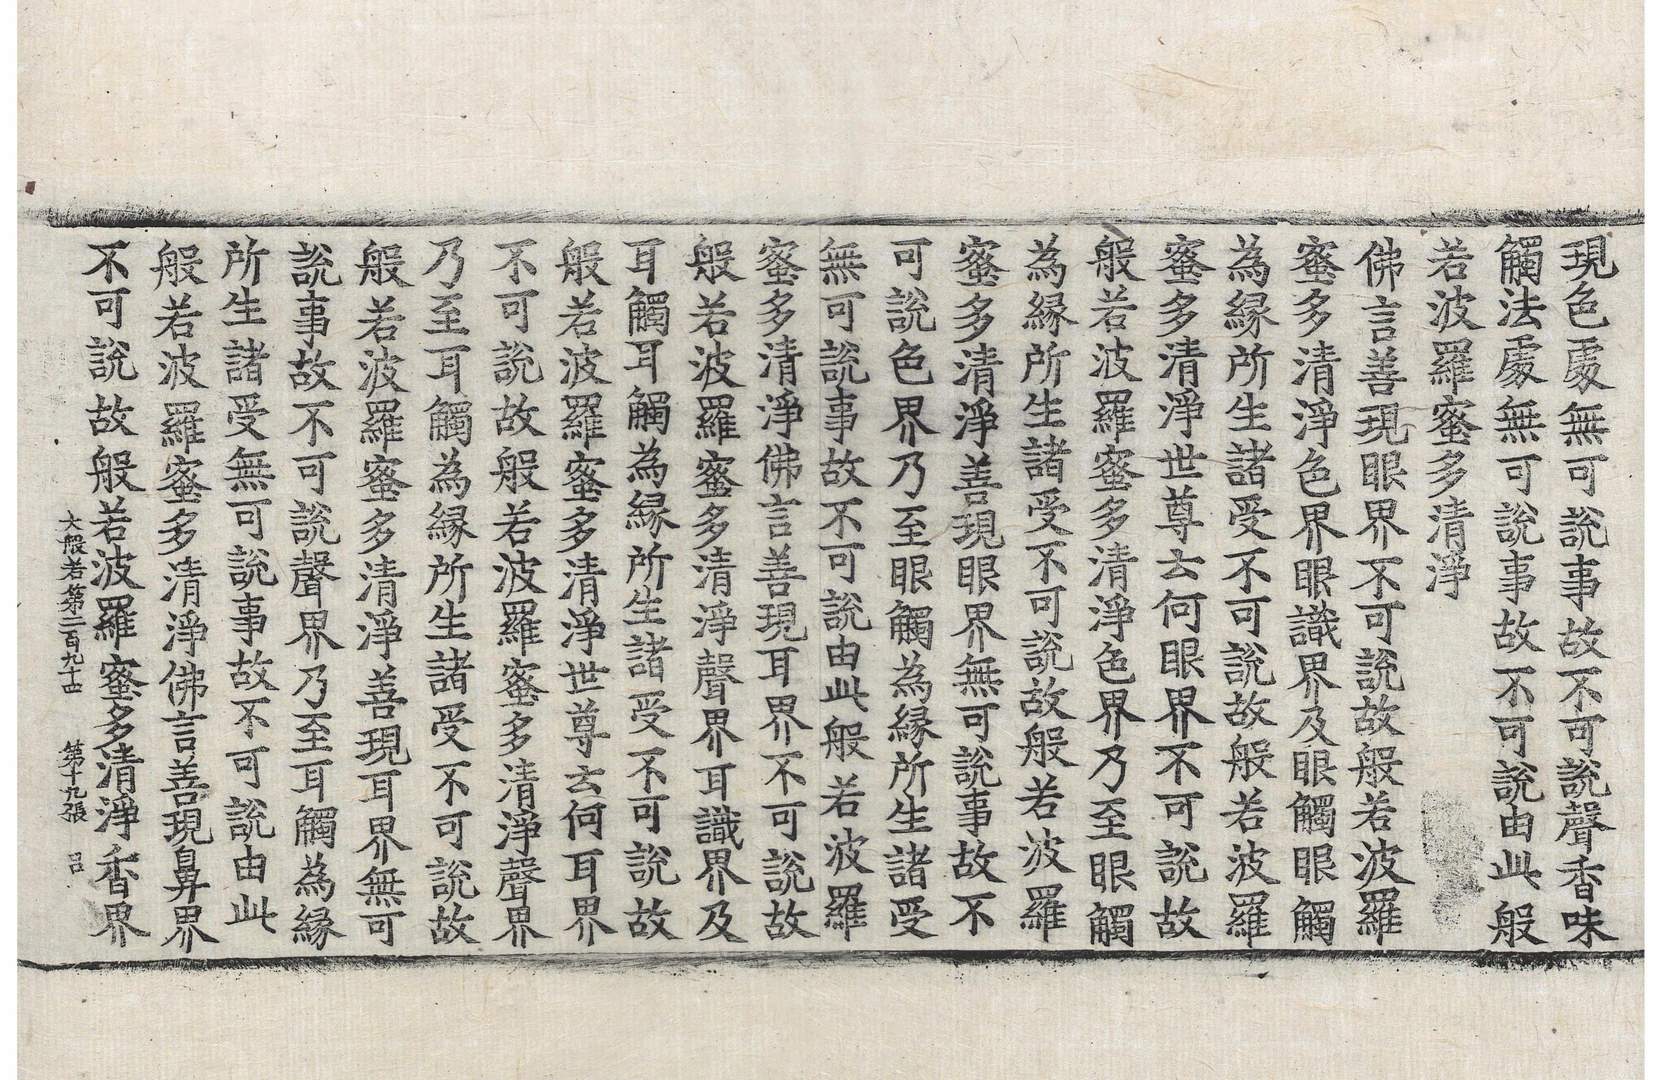 現色處無可說事故不可說聲香味
觸法處無可說事故不可說由此般
若波羅蜜多清淨
佛言善現眼界不可說故般若波羅
蜜多清淨色界眼識界及眼觸眼觸
為緣所生諸受不可說故般若波羅
蜜多清淨世尊云何眼界不可說故
般若波羅蜜多清淨色界乃至眼觸
為緣所生諸受不可說故般若波羅
蜜多清淨善現眼界無可說事故不
可說色界乃至眼觸為緣所生諸受
無可說事故不可說由此般若波羅
蜜多清淨佛言善現耳界不可說故
般若波羅蜜多清淨聲界耳識界及
耳觸耳觸為緣所生諸受不可說故
般若波羅蜜多清淨世尊云何耳界
不可說故般若波羅蜜多清淨聲界
乃至耳觸為緣所生諸受不可說故
般若波羅蜜多清淨善現耳界無可
說事故不可說聲界乃至耳觸為緣
所生諸受無可說事故不可說由此
般若波羅蜜多清淨佛言善現鼻界
不可說故般若波羅蜜多清淨香界
大般若第二百九十四 第十九張 呂